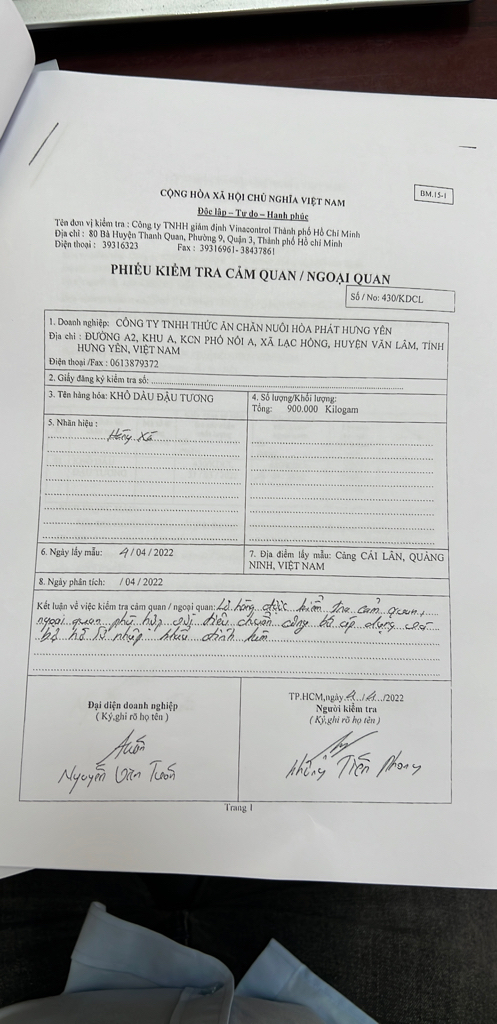 BM.15-1
CỘNG HÒA XÃ HỘI CHỦ NGHĨA VIỆT NAM
Độc lập – Tự do – Hạnh phúc
Tên đơn vị kiểm tra : Công ty TNHH giám định Vinacontrol Thành phố Hồ Chí Minh
Địa chỉ : 80 Bà Huyện Thanh Quan, Phường 9, Quận 3, Thành phố Hồ chí Minh
Điện thoại : 39316323 Fax : 39316961- 38437861
PHIẾU KIỂM TRA CẢM QUAN / NGOẠI QUAN
Số / No: 430/KDCL
1. Doanh nghiệp: CÔNG TY TNHH THỨC ĂN CHĂN NUÔI HÒA PHÁT HƯNG YÊN
Địa chỉ : ĐƯỜNG A2, KHU A, KCN PHỐ NỐI A, XÃ LẠC HỒNG, HUYỆN VĂN LÂM, TỈNH
HƯNG YÊN, VIỆT NAM
Điện thoại /Fax : 0613879372
2. Giấy đăng ký kiểm tra số:
3. Tên hàng hóa: KHÔ DẦU ĐẬU TƯƠNG
4. Số lượng/Khối lượng:
Tổng: 900.000 Kilogam
5. Nhãn hiệu :
Hàng Xá
6. Ngày lấy mẫu: 4/04/2022
7. Địa điểm lấy mẫu: Cảng CÁI LÂN, QUẢNG
NINH, VIỆT NAM
8. Ngày phân tích: /04/2022
Kết luận về việc kiểm tra cảm quan / ngoại quan: Lô hàng được kiểm tra cảm quan,
ngoại quan phù hợp với tiêu chuẩn công bố áp dụng và
bộ hồ sơ nhập khẩu đính kèm
Đại diện doanh nghiệp
( Ký,ghi rõ họ tên )
Tuấn
Nguyễn Văn Tuấn
TP.HCM,ngày 4/4/2022
Người kiểm tra
( Ký,ghi rõ họ tên )
Tiến Phong
Trang 1